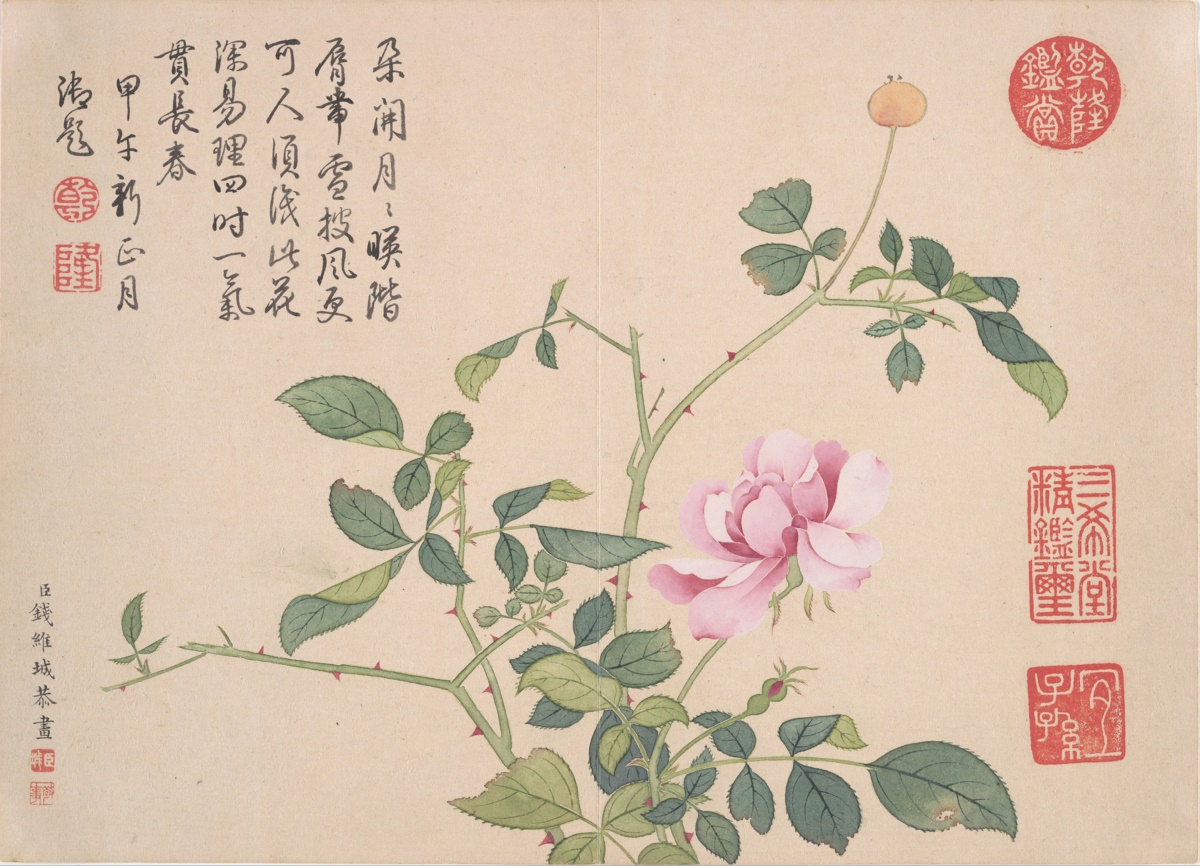 乾隆鑑賞
三希堂精鑑璽
宜子孫
朵開月〻暎階
脣帶雪披風更
可人須識此花
深易理四時一氣
貫長春
甲午新正月
御題
乾
隆
臣錢維城恭畫